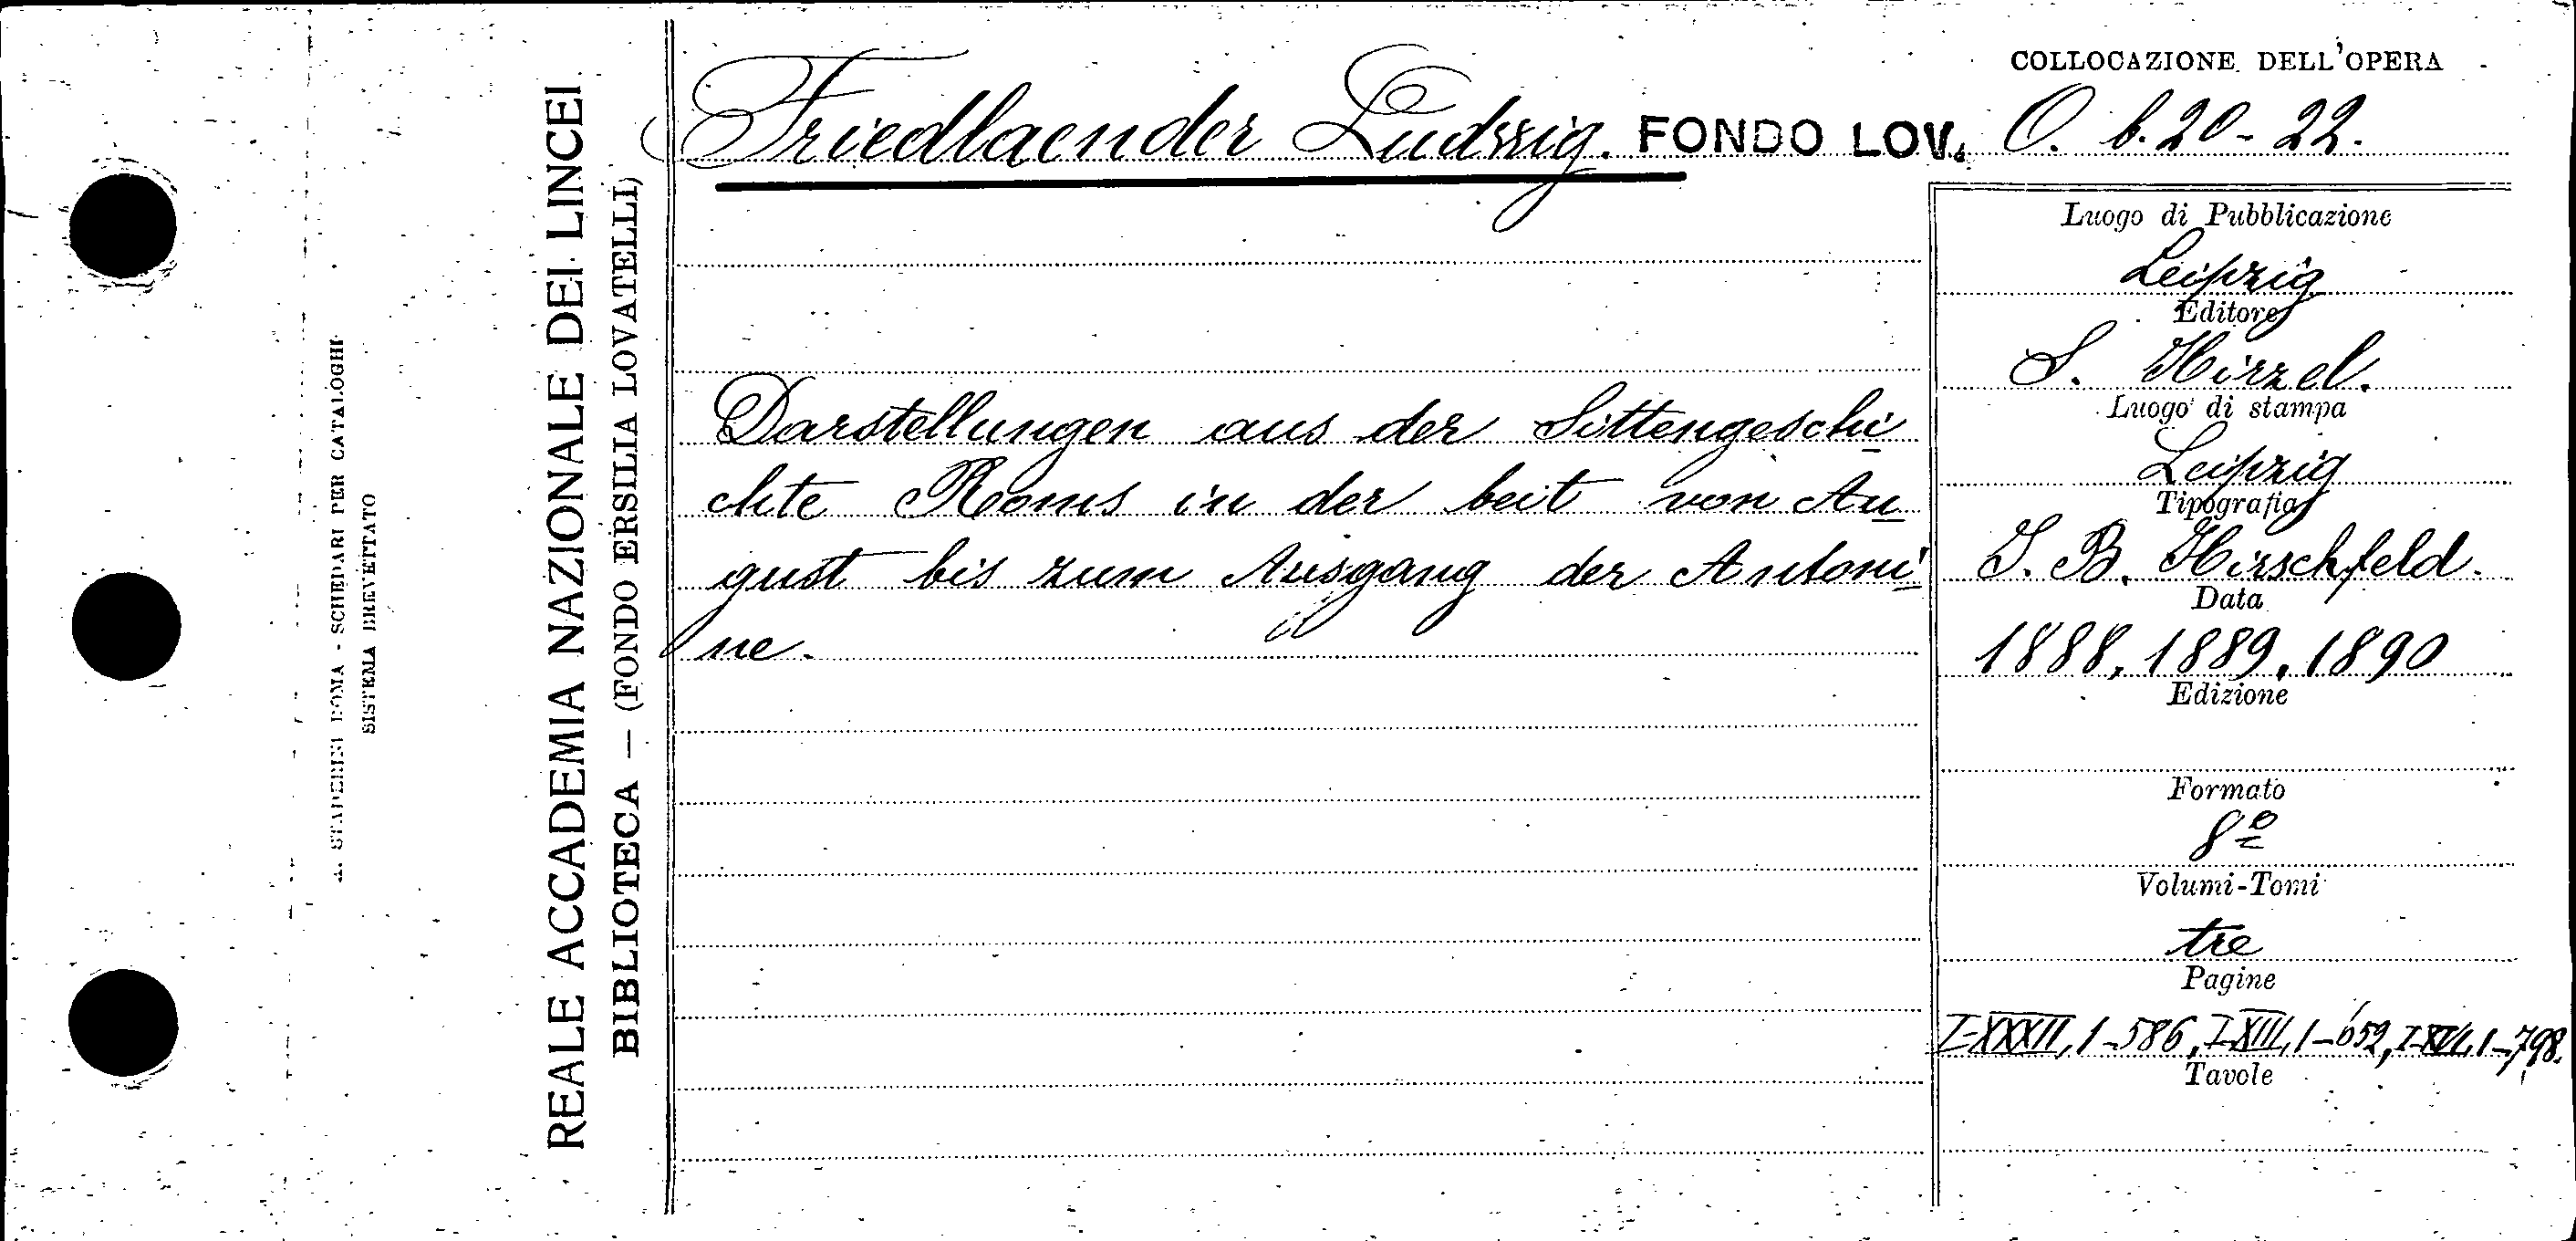 A. STADERINI ROMA - SCHEDARI PER CATALOGHI
SISTEMA BREVETTATO
REALE ACCADEMIA NAZIONALE DEI LINCEI
BIBLIOTECA — (FONDO ERSILIA LOVATELLI)
Friedlaender Ludwig. FONDO LOV.
COLLOCAZIONE DELL'OPERA
O. b. 20-22.
Darstellungen aus der Sittengeschi
chte Rooms in der beit von Au
gust bis zum Ausgang der Antoni
ne.
Luogo di Pubblicazione
Leipzig
Editore
S. Hirzel.
Luogo di stampa
Leipzig
Tipografia
J. B. Hirschfeld.
Data
1888, 1889, 1890
Edizione
Formato
8º
Volumi-Tomi
tre
Pagine
I-XXXII, 1-586, I-XIII, 1-652, 1-798.
Tavole